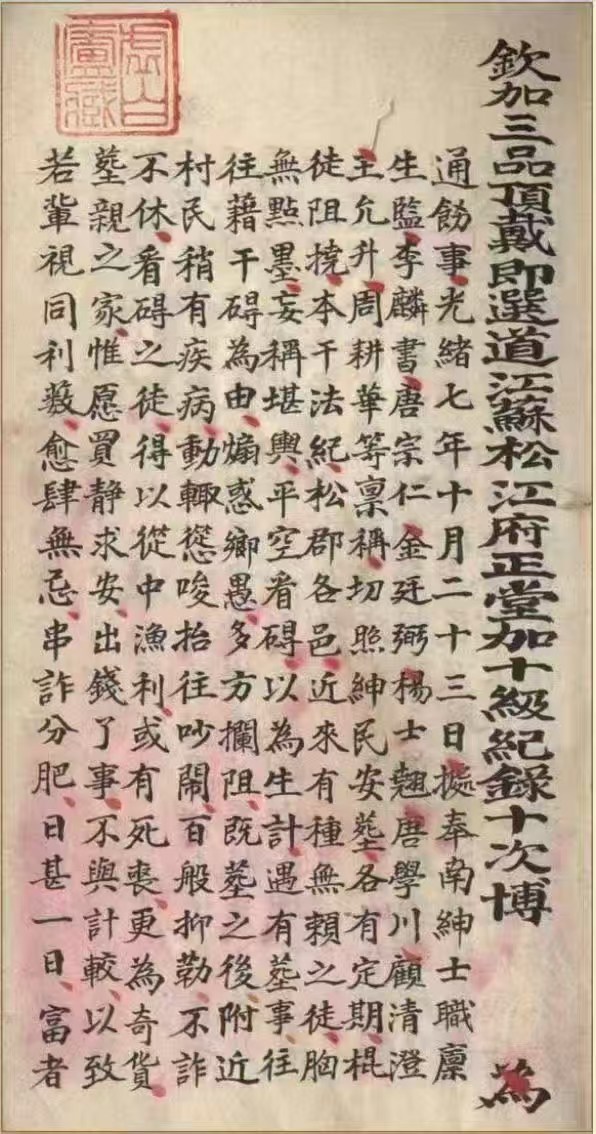 欽加三品頂戴即選道江蘇松江府正堂加十級紀錄十次博 為
通飭事光緒七年十月二十三日據奉南紳士職廩
生監李麟書唐宗仁金廷弼楊士翹唐學川顧清澄
王允升周耕華等稟稱切照紳民安塟各有定期棍
徒阻撓本干法紀松郡各邑近來有種無賴之徒胸
無點墨妄稱堪輿平空看碍以為生計遇有塟事往
往藉干碍為由煽惑鄉愚多方攔阻既塟之後附近
村民稍有疾病動輒慫唆抬往吵鬧百般抑勒不詐
不休看碍之徒得以從中漁利或有死喪更為奇貨
塟親之家惟愿買靜求安出錢了事不與計較以致
若輩視同利藪愈肆無忌串詐分肥日甚一日富者
虛白
廬藏